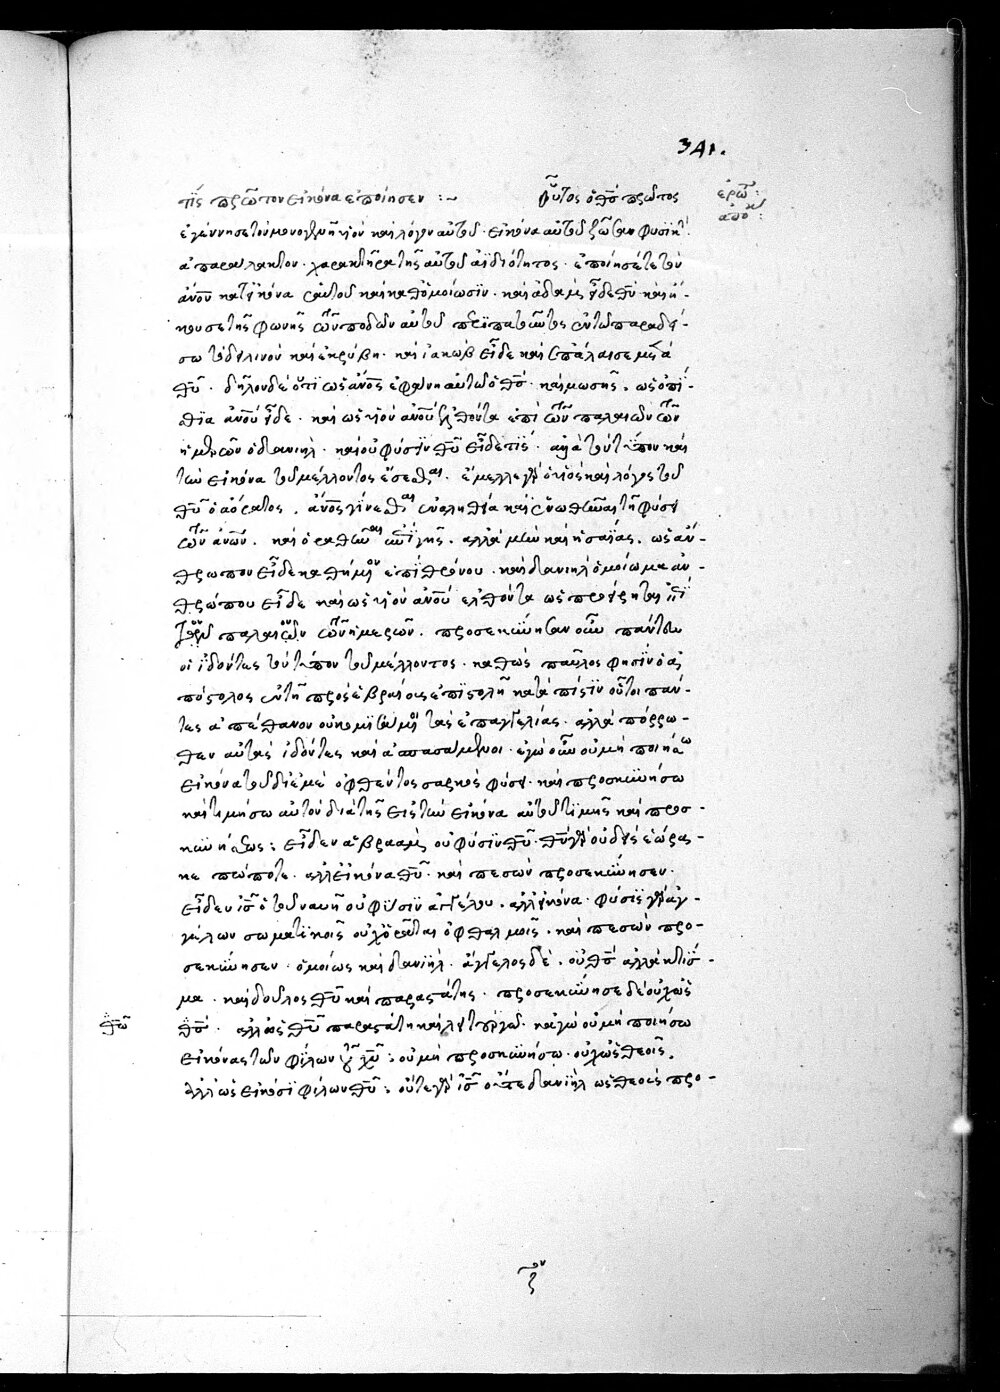 341.
τίς πρῶτον εἰκόνα ἐποίησεν :~ αὐτὸς ὁ θσ πρῶτος
ἐρώ :
ἀπό :
ἐγέννησε τὸν μονογενῆ υἱὸν καὶ λόγον αὐτοῦ· εἰκόνα αὐτοῦ ζῶσαν φυσικὴν
ἀπαράλακτον· χαρακτῆρα τῆς αὐτοῦ ἀϊδιότητος· ἐποίησέ τε τὸν
ἀνον κατ' εἰκόνα αὐτοῦ καὶ καθ' ὁμοίωσιν· καὶ ἀδὰμ εἶδε θν καὶ ἤ-
κουσε τῆς φωνῆς τῶν ποδῶν αὐτοῦ περιπατοῦντος ἐν τῶ παραδεί-
σω τὸ δειλινὸν καὶ ἐκρύβη· καὶ ἰακὼβ εἶδε καὶ ἐπάλαισε μετὰ
θυ· δῆλον δὲ ὅτι ὡς ἀνος ἐφάνη αὐτῶ ὁ θσ· καὶ μωσῆς, ὡς ὀπί-
σθια ἀνου εἶδε· καὶ ὡς υἱὸν ἀνου ἐλθόντα ἐπὶ τῶν παλαιῶν τῶν
ἡμερῶν ὁ δανιὴλ· καὶ οὐ φύσιν θυ εἶδε τίς· ἀλλὰ τὸν τύπον καὶ
τὴν εἰκόνα τοῦ μέλλοντος ἔσεσθαι· ἔμελλε γὰρ ὁ υἱὸς καὶ λόγος τοῦ
θυ ὁ ἀόρατος, ἄνος γίνεσθαι ἐν ἀληθεία καὶ ἑνωθῆναι τῆ φύσει
τῶν ἀνων, καὶ ὁραθῆναι ἐπὶ γῆς, ἀλλὰ μὴν καὶ ἡσαΐας, ὡς ἄν-
θρωπον εἶδε καθήμενον ἐπὶ θρόνου· καὶ δανιὴλ ὁμοίωμα ἀν-
θρώπου εἶδε καὶ ὡς υἱὸν ἀνου ἐλθόντα ὡς προείρηται ἐπὶ
τὸν παλαιὸν τῶν ἡμερῶν. προσεκύνησαν οὖν πάντες
οἱ ἰδόντες τὸν τύπον τοῦ μέλλοντος· καθὼς παῦλος φησὶν ὁ ἀ-
πόστολος ἐν τῆ πρὸς ἑβραίους ἐπιστολῆ κατὰ πίστιν οὗτοι πάν-
τες ἀπέθανον οὐ κομισάμενοι τὰς ἐπαγγελίας· ἀλλὰ πόρρω-
θεν αὐτὰς ἰδόντες καὶ ἀσπασάμενοι· ἐγὼ οὖν οὐ μὴ ποιήσω
εἰκόνα τοῦ δι' ἐμὲ ὀφθέντος σαρκὸς φύσει· καὶ προσκυνήσω
καὶ τιμήσω αὐτὸν διὰ τῆς εἰς τὴν εἰκόνα αὐτοῦ τιμῆς καὶ προσ-
κυνήσεως : εἶδεν ἀβραὰμ οὐ φύσιν θυ· θν γὰρ οὐδεὶς ἑώρα-
κε πώποτε· ἀλλ' εἰκόνα θυ· καὶ πεσὼν προσεκύνησεν·
εἶδεν ἰσ ὁ τοῦ ναυῆ οὐ φύσιν ἀγγέλου· ἀλλ' εἰκόνα· φύσις γὰρ ἀγ-
γέλων σωματικοῖς οὐχ ὁρᾶται ὀφθαλμοῖς, καὶ πεσὼν προ-
σεκύνησεν· ὁμοίως καὶ δανιὴλ· ἄγγελος δὲ, οὐ θσ ἀλλὰ κτίσ-
μα· καὶ δοῦλος θυ καὶ παραστάτης· προσεκύνησε δὲ οὐχ ὡς
θω
θσ· ἀλλ' ὡς θυ παραστάτη καὶ λειτουργῶ· κἀγὼ οὐ μὴ ποιήσω
εἰκόνας τῶν φίλων χυ : οὐ μὴ προσκυνήσω· οὐχ ὡς θεοῖς,
ἀλλ' ὡς εἰκόσι φίλων θυ : οὔτε γὰρ ἰσ οὔτε δανιὴλ ὡς θεοῖς προ-